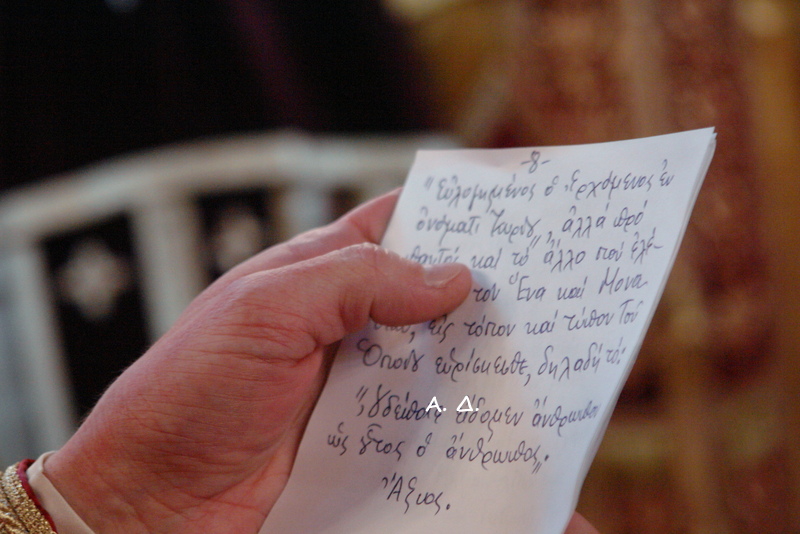 -8-
"Εὐλογημένος ὁ Ἐρχόμενος ἐν
ὀνόματι Κυρίου", ἀλλά πρό
παντός καί τό ἄλλο πού ἐλέ-
τον Ἕνα καί Μονα-
εἰς τόπον καί τύπον Τοῦ
Ὁποίου εὑρίσκεσθε, δηλαδή τό:
"οὐδέποτε εἴδομεν ἄνθρωπον
ὡς οὗτος ὁ ἄνθρωπος".
Ἄξιος.
Α. Δ.